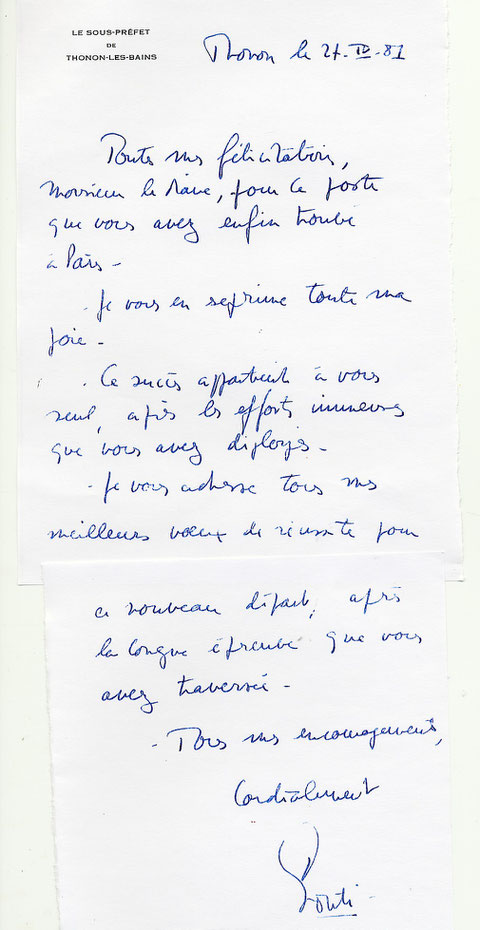 LE SOUS-PRÉFET
DE
THONON-LES-BAINS
Thonon le 27-IV-81
Toutes mes félicitations,
Monsieur le Maire, pour ce poste
que vous avez enfin trouvé
à Paris -
- Je vous en exprime toute ma
joie -
- Ce succès appartient à vous
seul, après les efforts immenses
que vous avez déployés -
- Je vous adresse tous mes
meilleurs vœux de réussite pour
ce nouveau départ, après
la longue épreuve que vous
avez traversée -
- Tous mes encouragements,
Cordialement